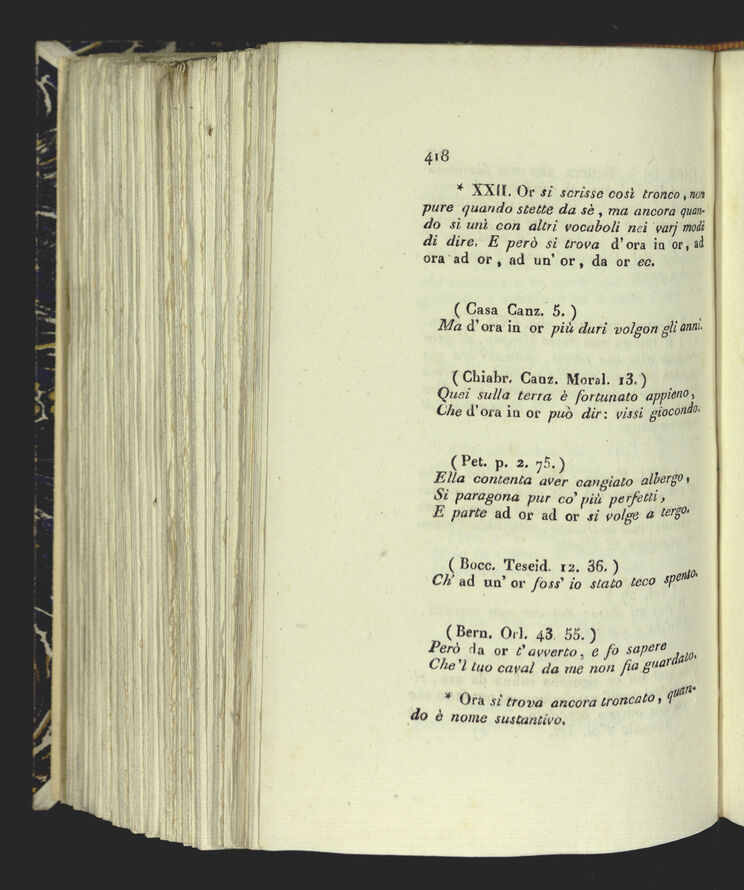 418
* XXII. Or si scrisse così tronco, non
pure quando stette da sè, ma ancora quan-
do si unì con altri vocaboli nei varj modi
di dire. E però si trova d'ora in or, ad
ora ad or, ad un' or, da or ec.
( Casa Canz. 5. )
Ma d'ora in or più duri volgon gli anni.
( Chiabr. Canz. Moral. 13. )
Quei sulla terra è fortunato appieno,
Che d'ora in or può dir: vissi giocondo.
( Pet. p. 2. 75. )
Ella contenta aver cangiato albergo,
Si paragona pur co' più perfetti,
E parte ad or ad or si volge a tergo.
( Bocc. Teseid. 12. 36. )
Ch' ad un' or foss' io stato teco spento.
( Bern. Orl. 43. 55. )
Però da or t'avverto, e fo sapere
Che'l tuo caval da me non fia guardato.
* Ora si trova ancora troncato, quan-
do è nome sustantivo.